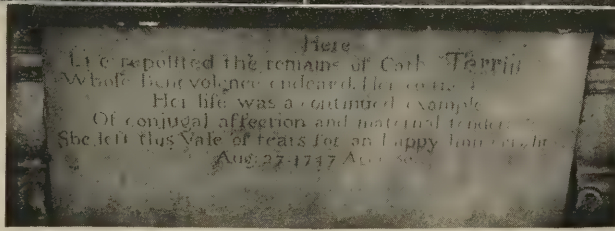 Here
Lye reposited the remains of Cath. Terrin
Whose Benevolence endeared Her to
Her life was a continued example
Of conjugal affection and maternal tender
She left this Vale of tears for an happy
Aug: 27. 1747